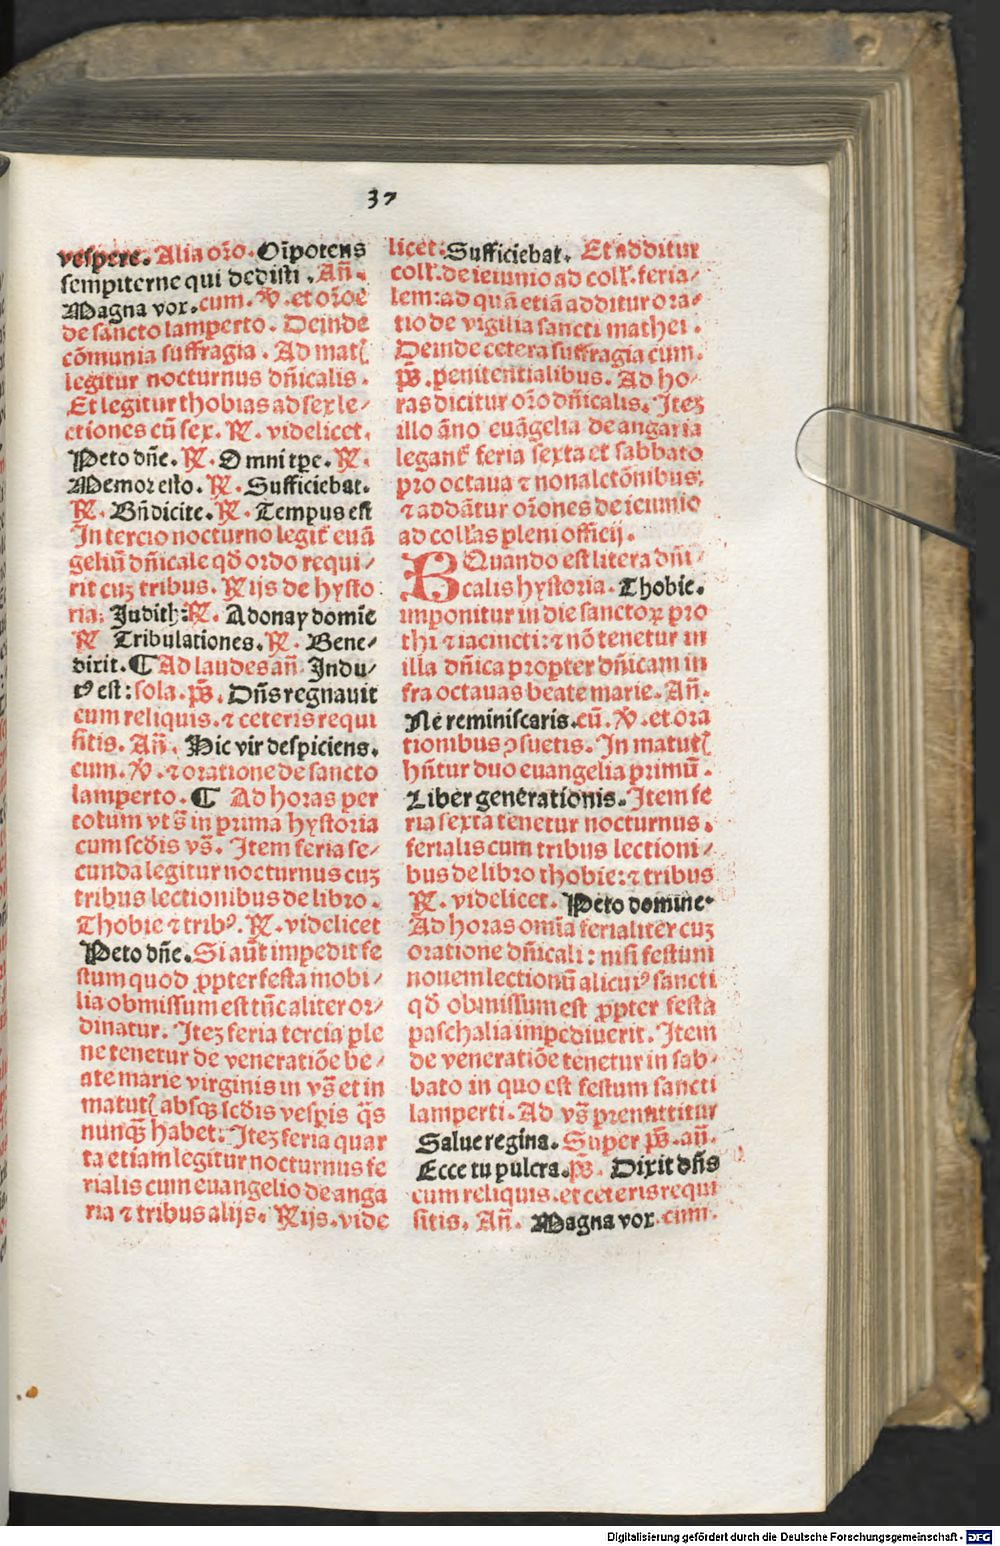 37
vespere. Alia or̃o. Oĩpotens
sempiterne qui dedisti. Añ.
Magna vox. cum. ꝟ. et or̃oẽ
de sancto lamperto. Deinde
cõmunia suffragia. Ad mat᷒
legitur nocturnus dñicalis.
Et legitur thobias ad sex le⸗
ctiones cũ sex. ℞. videlicet.
Peto dñe. ℞. Omni tp̃e. ℞.
Memor esto. ℞. Sufficiebat.
℞. Bñdicite. ℞. Tempus est
In tercio nocturno legit᷑ euã
geliũ dñicale qd̃ ordo requi⸗
rit cuꝫ tribus. ℞ijs de hysto
ria: Judith: ℞. Adonay domĩe
℞ Tribulationes. ℞. Bene⸗
dixit. ¶ Ad laudes añ. Indu⸗
tꝰ est: sola. p̃s. Dñs regnauit
cum reliquis. ⁊ ceteris requi
sitis. Añ. Hic vir despiciens.
cum. ꝟ. ⁊ oratione de sancto
lamperto. ¶ Ad horas per
totum vt s̃ in prima hystoria
cum scd̃is vs̃. Item feria se⸗
cunda legitur nocturnus cuꝫ
tribus lectionibus de libro.
Thobie ⁊ tribꝰ. ℞. videlicet
Peto dñe. Si aũt impedit fe
stum quod ꝓpter festa mobi⸗
lia obmissum est tũc aliter or⸗
dinatur. Iteꝫ feria tercia ple
ne tenetur de veneratiõe be⸗
ate marie virginis in vs̃ et in
matut᷒ absqꝫ scd̃is vesp̃is q̃s
nunqꝫ habet. Iteꝫ feria quar
ta etiam legitur nocturnus fe
rialis cum euangelio de anga
ria ⁊ tribus alijs. ℞ijs. vide
licet. Sufficiebat. Et additur
coll̃. de ieiunio ad coll̃. feria⸗
lem: ad quã etiã additur ora⸗
tio de vigilia sancti mathei.
Deinde cetera suffragia cum.
p̃s. penitentialibus. Ad ho⸗
ras dicitur or̃o dñicalis. Iteꝫ
illo ãno euãgelia de angaria
legant᷑ feria sexta et sabbato
pro octaua ⁊ nona lctõnibus:
⁊ addãtur or̃ones de ieiunio
ad coll̃as pleni officij.
B Quando est litera dñi⸗
calis hystoria. Thobie.
imponitur in die sanctoꝝ pro
thi ⁊ iacincti: ⁊ nõ tenetur in
illa dñica propter dñicam in
fra octauas beate marie. Añ.
Ne reminiscaris. cũ. ꝟ. et ora
tionibus ꝯsuetis. In matut᷒
hñtur duo euangelia primũ.
Liber generationis. Item fe
ria sexta tenetur nocturnus.
ferialis cum tribus lectioni⸗
bus de libro thobie: ⁊ tribus
℞. videlicet. Peto domine.
Ad horas omĩa ferialiter cuꝫ
oratione dñicali: nisi festum
nouem lectionũ alicuiꝰ sancti
qd̃ obmissum est ꝓpter festa
paschalia impediuerit. Item
de veneratiõe tenetur in sab⸗
bato in quo est festum sancti
lamperti. Ad vs̃ premittitur
Salue regina. Super p̃s. añ.
Ecce tu pulcra. p̃s. Dixit dñs
cum reliquis. et ceteris requi
sitis. Añ. Magna vox. cum.
Digitalisierung gefördert durch die Deutsche Forschungsgemeinschaft - DFG